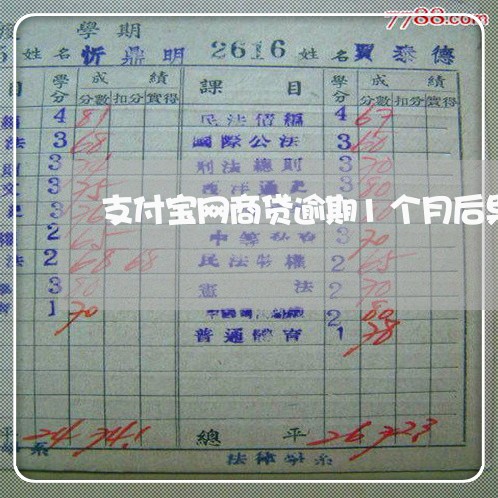 7788.com
學期
姓名 忻鼎明 2616 姓名 賈泰德
目 學分 成績 課目 學分 成績
分數 扣分 實得 分數 扣分 實得
4 81 民法債編 4 67
法 3 68 國際公法 3 60
3 刑法總則 3 70
3 75 3 80
支付宝网商贷逾期1个月后
2 65 3 70
法 2 68 68 民法物權 2 65
3 80 憲法 2 70
1 70 2 80
普通體育 1 78
平 24 74.1 總平 26 72.3
系 法律學系